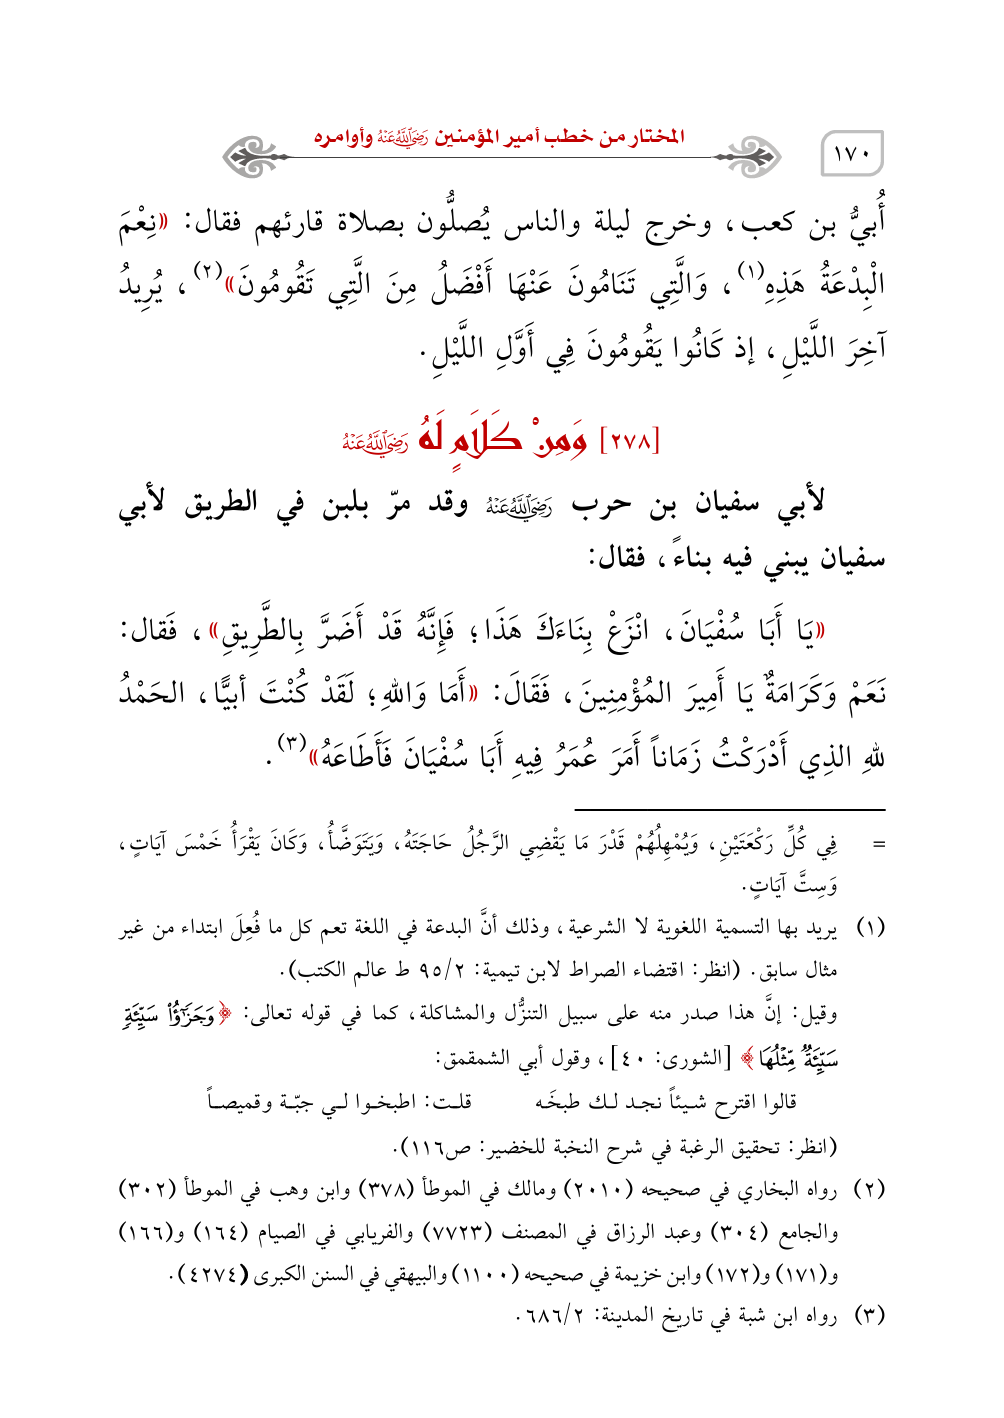 ١٧٠
المختار من خطب أمير المؤمنين رَضِيَ اللَّهُ عَنْهُ وأوامره
أُبيُّ بن كعب، وخرج ليلة والناس يُصلُّون بصلاة قارئهم فقال: «نِعْمَ
الْبِدْعَةُ هَذِهِ(١)، وَالَّتِي تَنَامُونَ عَنْهَا أَفْضَلُ مِنَ الَّتِي تَقُومُونَ»(٢)، يُرِيدُ
آخِرَ اللَّيْلِ، إذ كَانُوا يَقُومُونَ فِي أَوَّلِ اللَّيْلِ.
[٢٧٨] وَمِنْ كَلَامٍ لَهُ رَضِيَ اللَّهُ عَنْهُ
لأبي سفيان بن حرب رَضِيَ اللَّهُ عَنْهُ وقد مرّ بلبن في الطريق لأبي
سفيان يبني فيه بناءً، فقال:
«يَا أَبَا سُفْيَانَ، انْزَعْ بِنَاءَكَ هَذَا؛ فَإِنَّهُ قَدْ أَضَرَّ بِالطَّرِيقِ»، فَقال:
نَعَمْ وَكَرَامَةٌ يَا أَمِيرَ المُؤْمِنِينَ، فَقَالَ: «أَمَا وَاللهِ؛ لَقَدْ كُنْتَ أبيًّا، الحَمْدُ
للهِ الذِي أَدْرَكْتُ زَمَاناً أَمَرَ عُمَرُ فِيهِ أَبَا سُفْيَانَ فَأَطَاعَهُ»(٣).
= فِي كُلِّ رَكْعَتَيْنِ، وَيُمْهِلُهُمْ قَدْرَ مَا يَقْضِي الرَّجُلُ حَاجَتَهُ، وَيَتَوَضَّأُ، وَكَانَ يَقْرَأُ خَمْسَ آيَاتٍ،
وَسِتَّ آيَاتٍ.
(١) يريد بها التسمية اللغوية لا الشرعية، وذلك أنَّ البدعة في اللغة تعم كل ما فُعِلَ ابتداء من غير
مثال سابق. (انظر: اقتضاء الصراط لابن تيمية: ٩٥/٢ ط عالم الكتب).
وقيل: إنَّ هذا صدر منه على سبيل التنزُّل والمشاكلة، كما في قوله تعالى: ﴿وَجَزَٰٓؤُاْ سَيِّئَةٖ
سَيِّئَةٞ مِّثۡلُهَا﴾ [الشورى: ٤٠]، وقول أبي الشمقمق:
قالوا اقترح شـيئاً نجـد لـك طبخَـه قلـت: اطبخـوا لـي جبّـة وقميصـاً
(انظر: تحقيق الرغبة في شرح النخبة للخضير: ص١١٦).
(٢) رواه البخاري في صحيحه (٢٠١٠) ومالك في الموطأ (٣٧٨) وابن وهب في الموطأ (٣٠٢)
والجامع (٣٠٤) وعبد الرزاق في المصنف (٧٧٢٣) والفريابي في الصيام (١٦٤) و(١٦٦)
و(١٧١) و(١٧٢) وابن خزيمة في صحيحه (١١٠٠) والبيهقي في السنن الكبرى (٤٢٧٤).
(٣) رواه ابن شبة في تاريخ المدينة: ٦٨٦/٢.